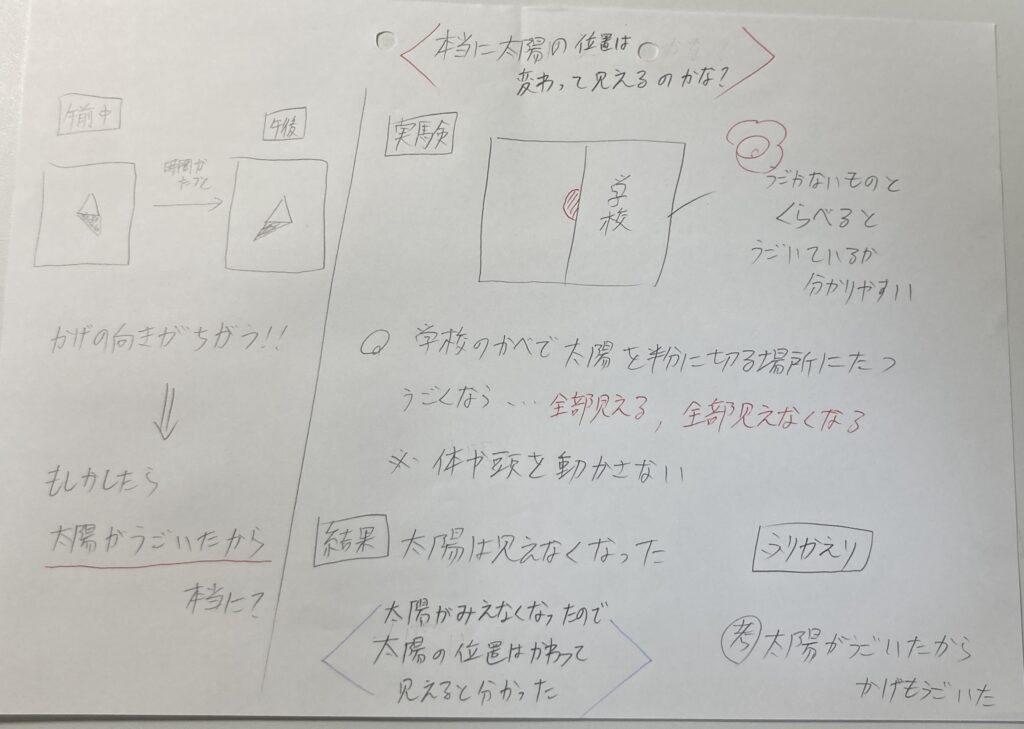 本当に太陽の位置は
変わって見えるのかな?
午前中
時間が
たつと
午後
かげの向きがちがう!!
もしかしたら
太陽がうごいたから
本当に?
実験
学校
うごかないものと
くらべると
うごいているか
分かりやすい
学校のかべで太陽を半分に切る場所にたつ
うごくなら...全部見える,全部見えなくなる
※体や頭を動かさない
結果 太陽は見えなくなった
太陽がみえなくなったので
太陽の位置はかわって
見えると分かった
ふりかえり
考 太陽がうごいたから
かげもうごいた